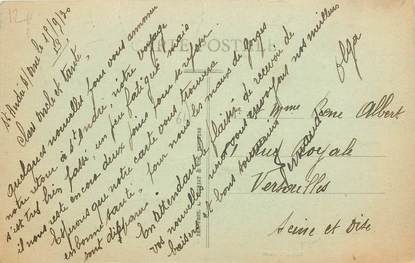 St André s/ Orne le 18/9/30
Cher oncle et tante,
Quelques nouvelles pour vous annoncer
notre retour à St André, notre voyage
s'est très bien passé, un peu fatigué mais
il nous reste encore deux jours pour se reposer.
Espérons que notre carte vous trouvera
en bonne santé, pour nous les maux de gorges
sont disparu.
En attendant le plaisir de recevoir de
vos nouvelles, recevez nos meilleurs
baisers et bons souvenirs
Olga
CARTE POSTALE
Mme René Albert
Rue Royale
Versailles
Seine et Oise